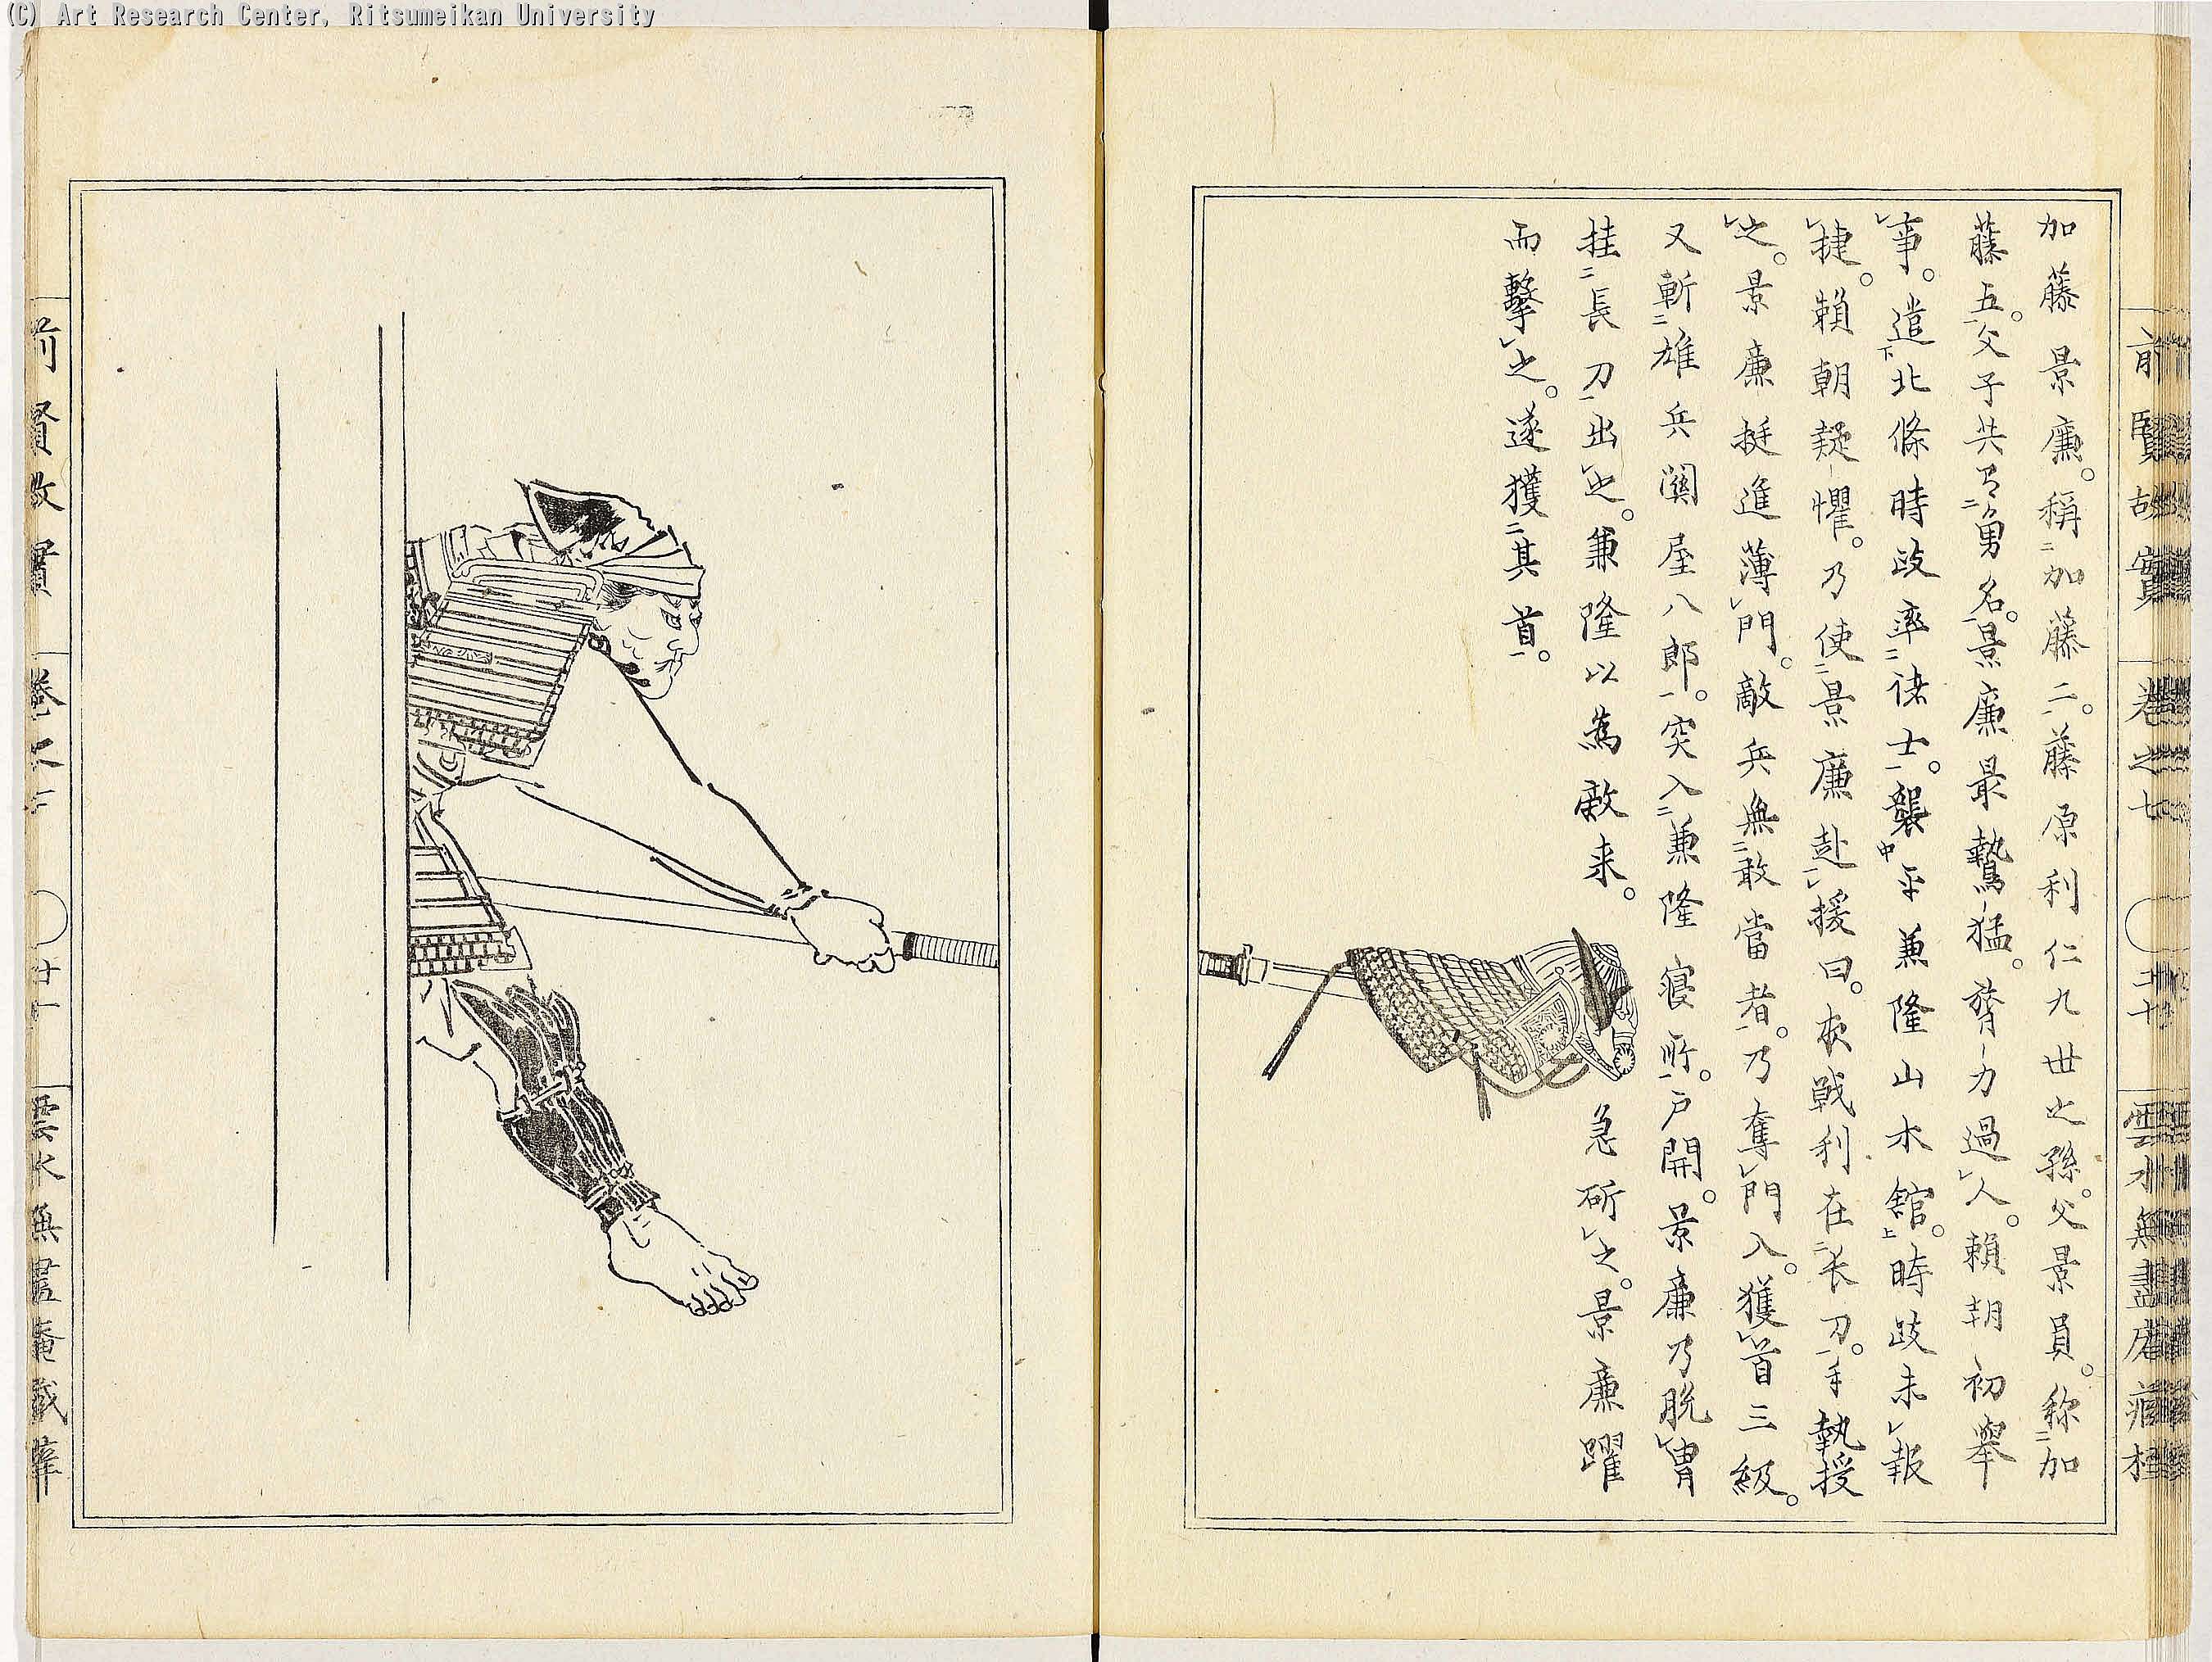 (C) Art Research Center, Ritsumeikan University
前賢故實 卷之七 ○ 二十 雲水無盡庵藏梓
加藤景廉。稱二加藤二一。藤原利仁九世之孫。父景員。称二加
藤五一。父子共有二勇名一。景廉最鷙-猛。膂-力過レ人。頼朝初舉
レ事。遣下北條時政率二諸士一。襲中平兼隆山木舘上。時政未レ報
レ捷。頼朝疑-懼。乃使二景廉赴一レ援曰。夜戦利在二长刀一。手執授
レ之。景廉挺進薄レ門。敵兵無二敢當者一。乃奪レ門入。獲レ首三級。
又斬二雄兵關屋八郎一。突入二兼隆寝所一。戸開。景廉乃脱レ冑
挂二長刀一出レ之。兼隆以為敵来。急斫レ之。景廉躍
而擊レ之。遂獲二其首一。
前賢故實 卷之七 ○ 廿一 雲水無盡庵藏梓